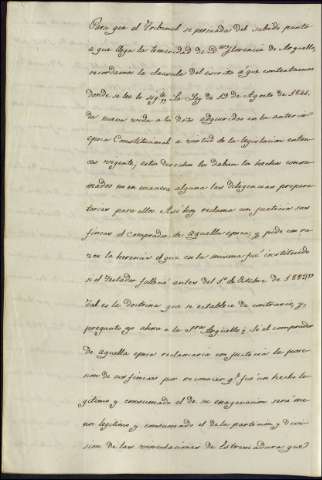 Para que el Tribunal se persuada del subido punto
á que llega la temeridad de D.ª Florencia de Arguello,
recordamos la clausula del escrito á que contestamos
donde se lee lo sig.te La Ley de 19 de Agosto de 1841
da nueva vida a los dros adquiridos en la anterior
epoca Constitucional a virtud de la legislacion enton-
ces vigente; estos derechos los daban los hechos consu-
mados no en manera alguna las diligencias prepara-
torias para ellos. Asi hoy reclama con justicia sus
fincas el comprador de aquella epoca, y pide con ra-
zon la herencia el que en la misma fué instituido
si el Testador falleció antes del 1º de Octubre de 1823
Tal es la doctrina que se establece de contrario, y
pregunto yo ahora a la Sra Arguello ¿Si el comprador
de aquella epoca reclamaria con justicia la pose-
sion de sus fincas por reconocer q.e fué un hecho le-
gitimo y consumado el de su enagenacion será me-
nos legitimo y consumado el de la particion y divi-
sion de las vinculaciones de Estremadura que